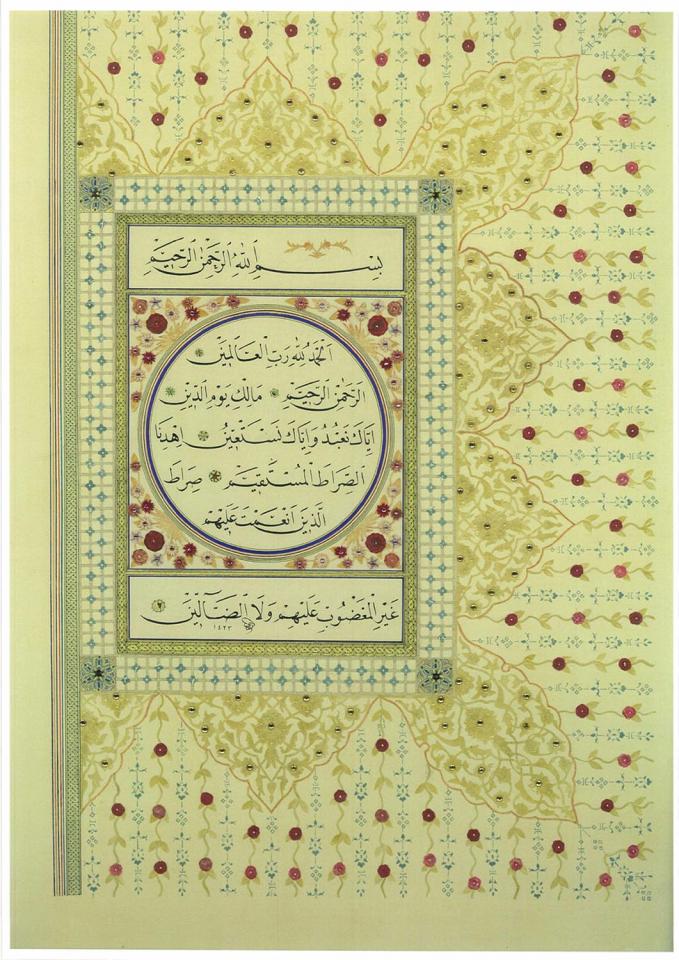 بِسْمِ اللهِ الرَّحْمٰنِ الرَّحِيْمِ
اَلْحَمْدُ لِلّٰهِ رَبِّ الْعَالَمِيْنَ
اَلرَّحْمٰنِ الرَّحِيْمِ مَالِكِ يَوْمِ الدِّيْنِ
اِيَّاكَ نَعْبُدُ وَاِيَّاكَ نَسْتَعِيْنُ اِهْدِنَا
الصِّرَاطَ الْمُسْتَقِيْمَ صِرَاطَ
الَّذِيْنَ اَنْعَمْتَ عَلَيْهِمْ
غَيْرِ الْمَغْضُوْبِ عَلَيْهِمْ وَلَا الضَّآلِّيْنَ ٧
١٤٢٣